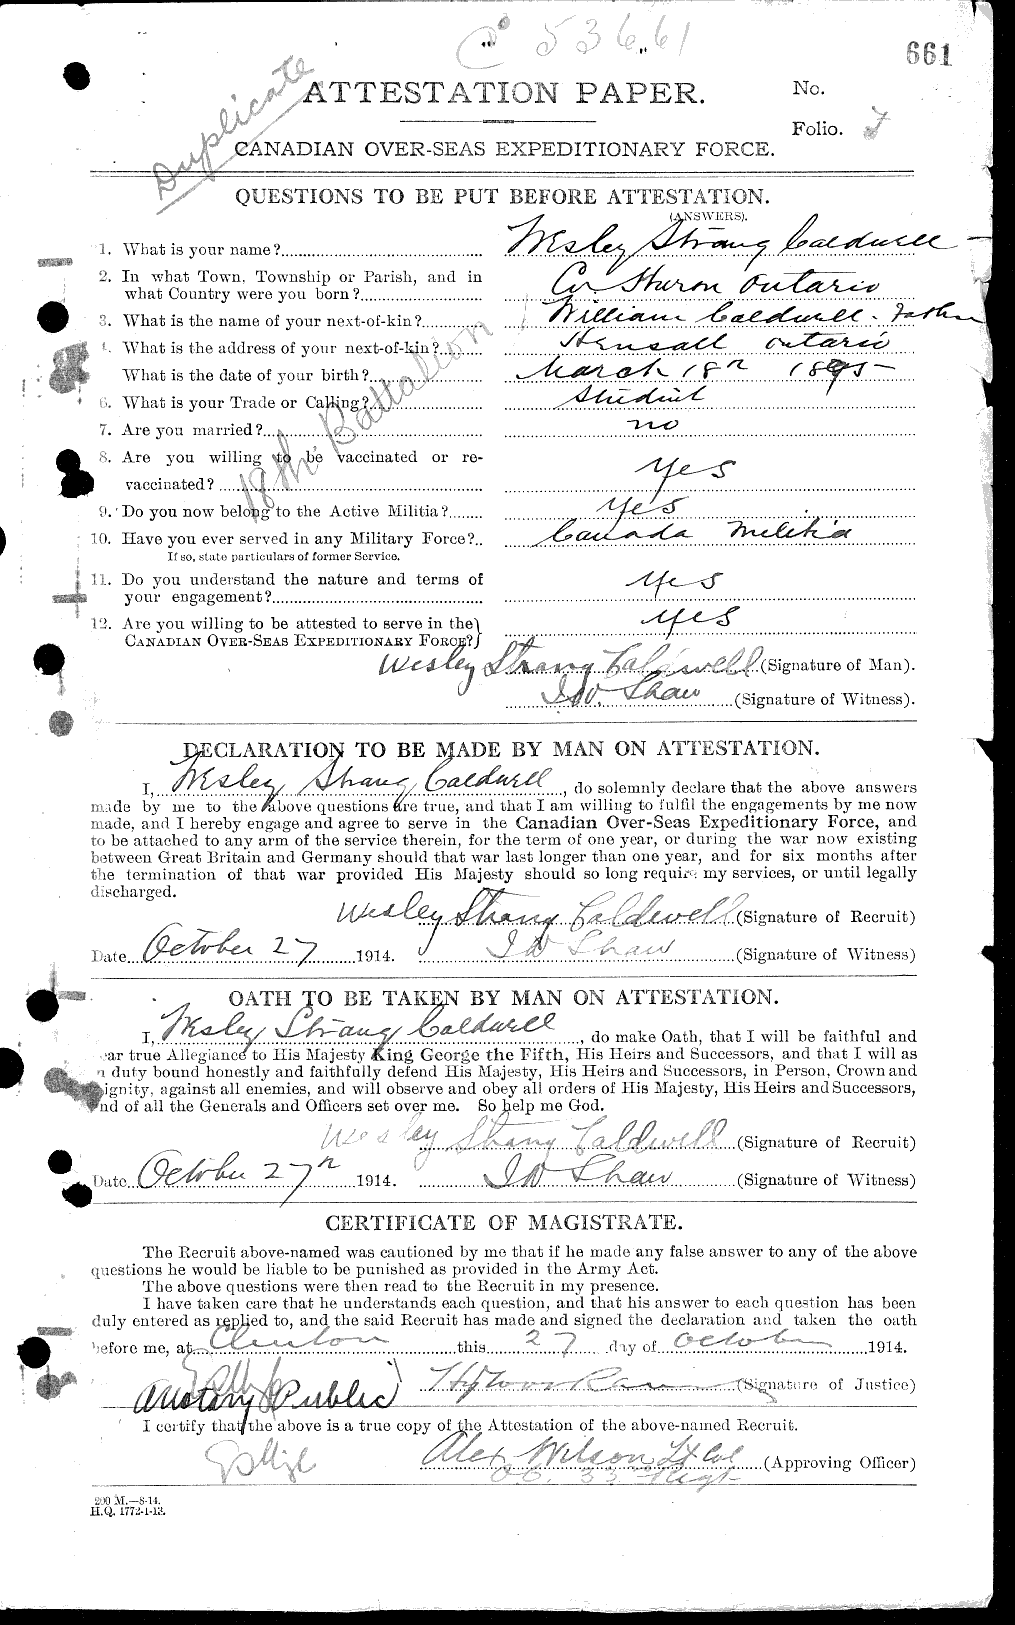 C 53661
661
Duplicate
ATTESTATION PAPER.
No.
Folio.
CANADIAN OVER-SEAS EXPEDITIONARY FORCE.
QUESTIONS TO BE PUT BEFORE ATTESTATION.
(ANSWERS).
1. What is your name? Wesley Strang Caldwell
2. In what Town, Township or Parish, and in
what Country were you born? Co Huron Ontario
3. What is the name of your next-of-kin? William Caldwell - Father
4. What is the address of your next-of-kin? Hensall Ontario
What is the date of your birth? March 18th 1895
6. What is your Trade or Calling? Student
7. Are you married? no
8. Are you willing to be vaccinated or re-
vaccinated? yes
9. Do you now belong to the Active Militia? yes
10. Have you ever served in any Military Force? Canada Militia
If so, state particulars of former Service.
11. Do you understand the nature and terms of
your engagement? yes
12. Are you willing to be attested to serve in the
CANADIAN OVER-SEAS EXPEDITIONARY FORCE? yes
18th Battalion
Wesley Strang Caldwell (Signature of Man).
I W. Shaw (Signature of Witness).
DECLARATION TO BE MADE BY MAN ON ATTESTATION.
I, Wesley Strang Caldwell, do solemnly declare that the above answers
made by me to the above questions are true, and that I am willing to fulfil the engagements by me now
made, and I hereby engage and agree to serve in the Canadian Over-Seas Expeditionary Force, and
to be attached to any arm of the service therein, for the term of one year, or during the war now existing
between Great Britain and Germany should that war last longer than one year, and for six months after
the termination of that war provided His Majesty should so long require my services, or until legally
discharged.
Wesley Strang Caldwell (Signature of Recruit)
Date October 27 1914. I W Shaw (Signature of Witness)
OATH TO BE TAKEN BY MAN ON ATTESTATION.
I, Wesley Strang Caldwell, do make Oath, that I will be faithful and
ar true Allegiance to His Majesty King George the Fifth, His Heirs and Successors, and that I will as
n duty bound honestly and faithfully defend His Majesty, His Heirs and Successors, in Person, Crown and
ignity, against all enemies, and will observe and obey all orders of His Majesty, His Heirs and Successors,
nd of all the Generals and Officers set over me. So help me God.
Wesley Strang Caldwell (Signature of Recruit)
Date October 27th 1914. I W Shaw (Signature of Witness)
CERTIFICATE OF MAGISTRATE.
The Recruit above-named was cautioned by me that if he made any false answer to any of the above
questions he would be liable to be punished as provided in the Army Act.
The above questions were then read to the Recruit in my presence.
I have taken care that he understands each question, and that his answer to each question has been
duly entered as replied to, and the said Recruit has made and signed the declaration and taken the oath
before me, at Clinton this 27 day of October 1914.
A Notary Public (Signature of Justice)
I certify that the above is a true copy of the Attestation of the above-named Recruit.
Alex Wilson Lt Col (Approving Officer)
O.C. 33 Regt
200 M.—8-14.
H.Q. 1772-1-13.